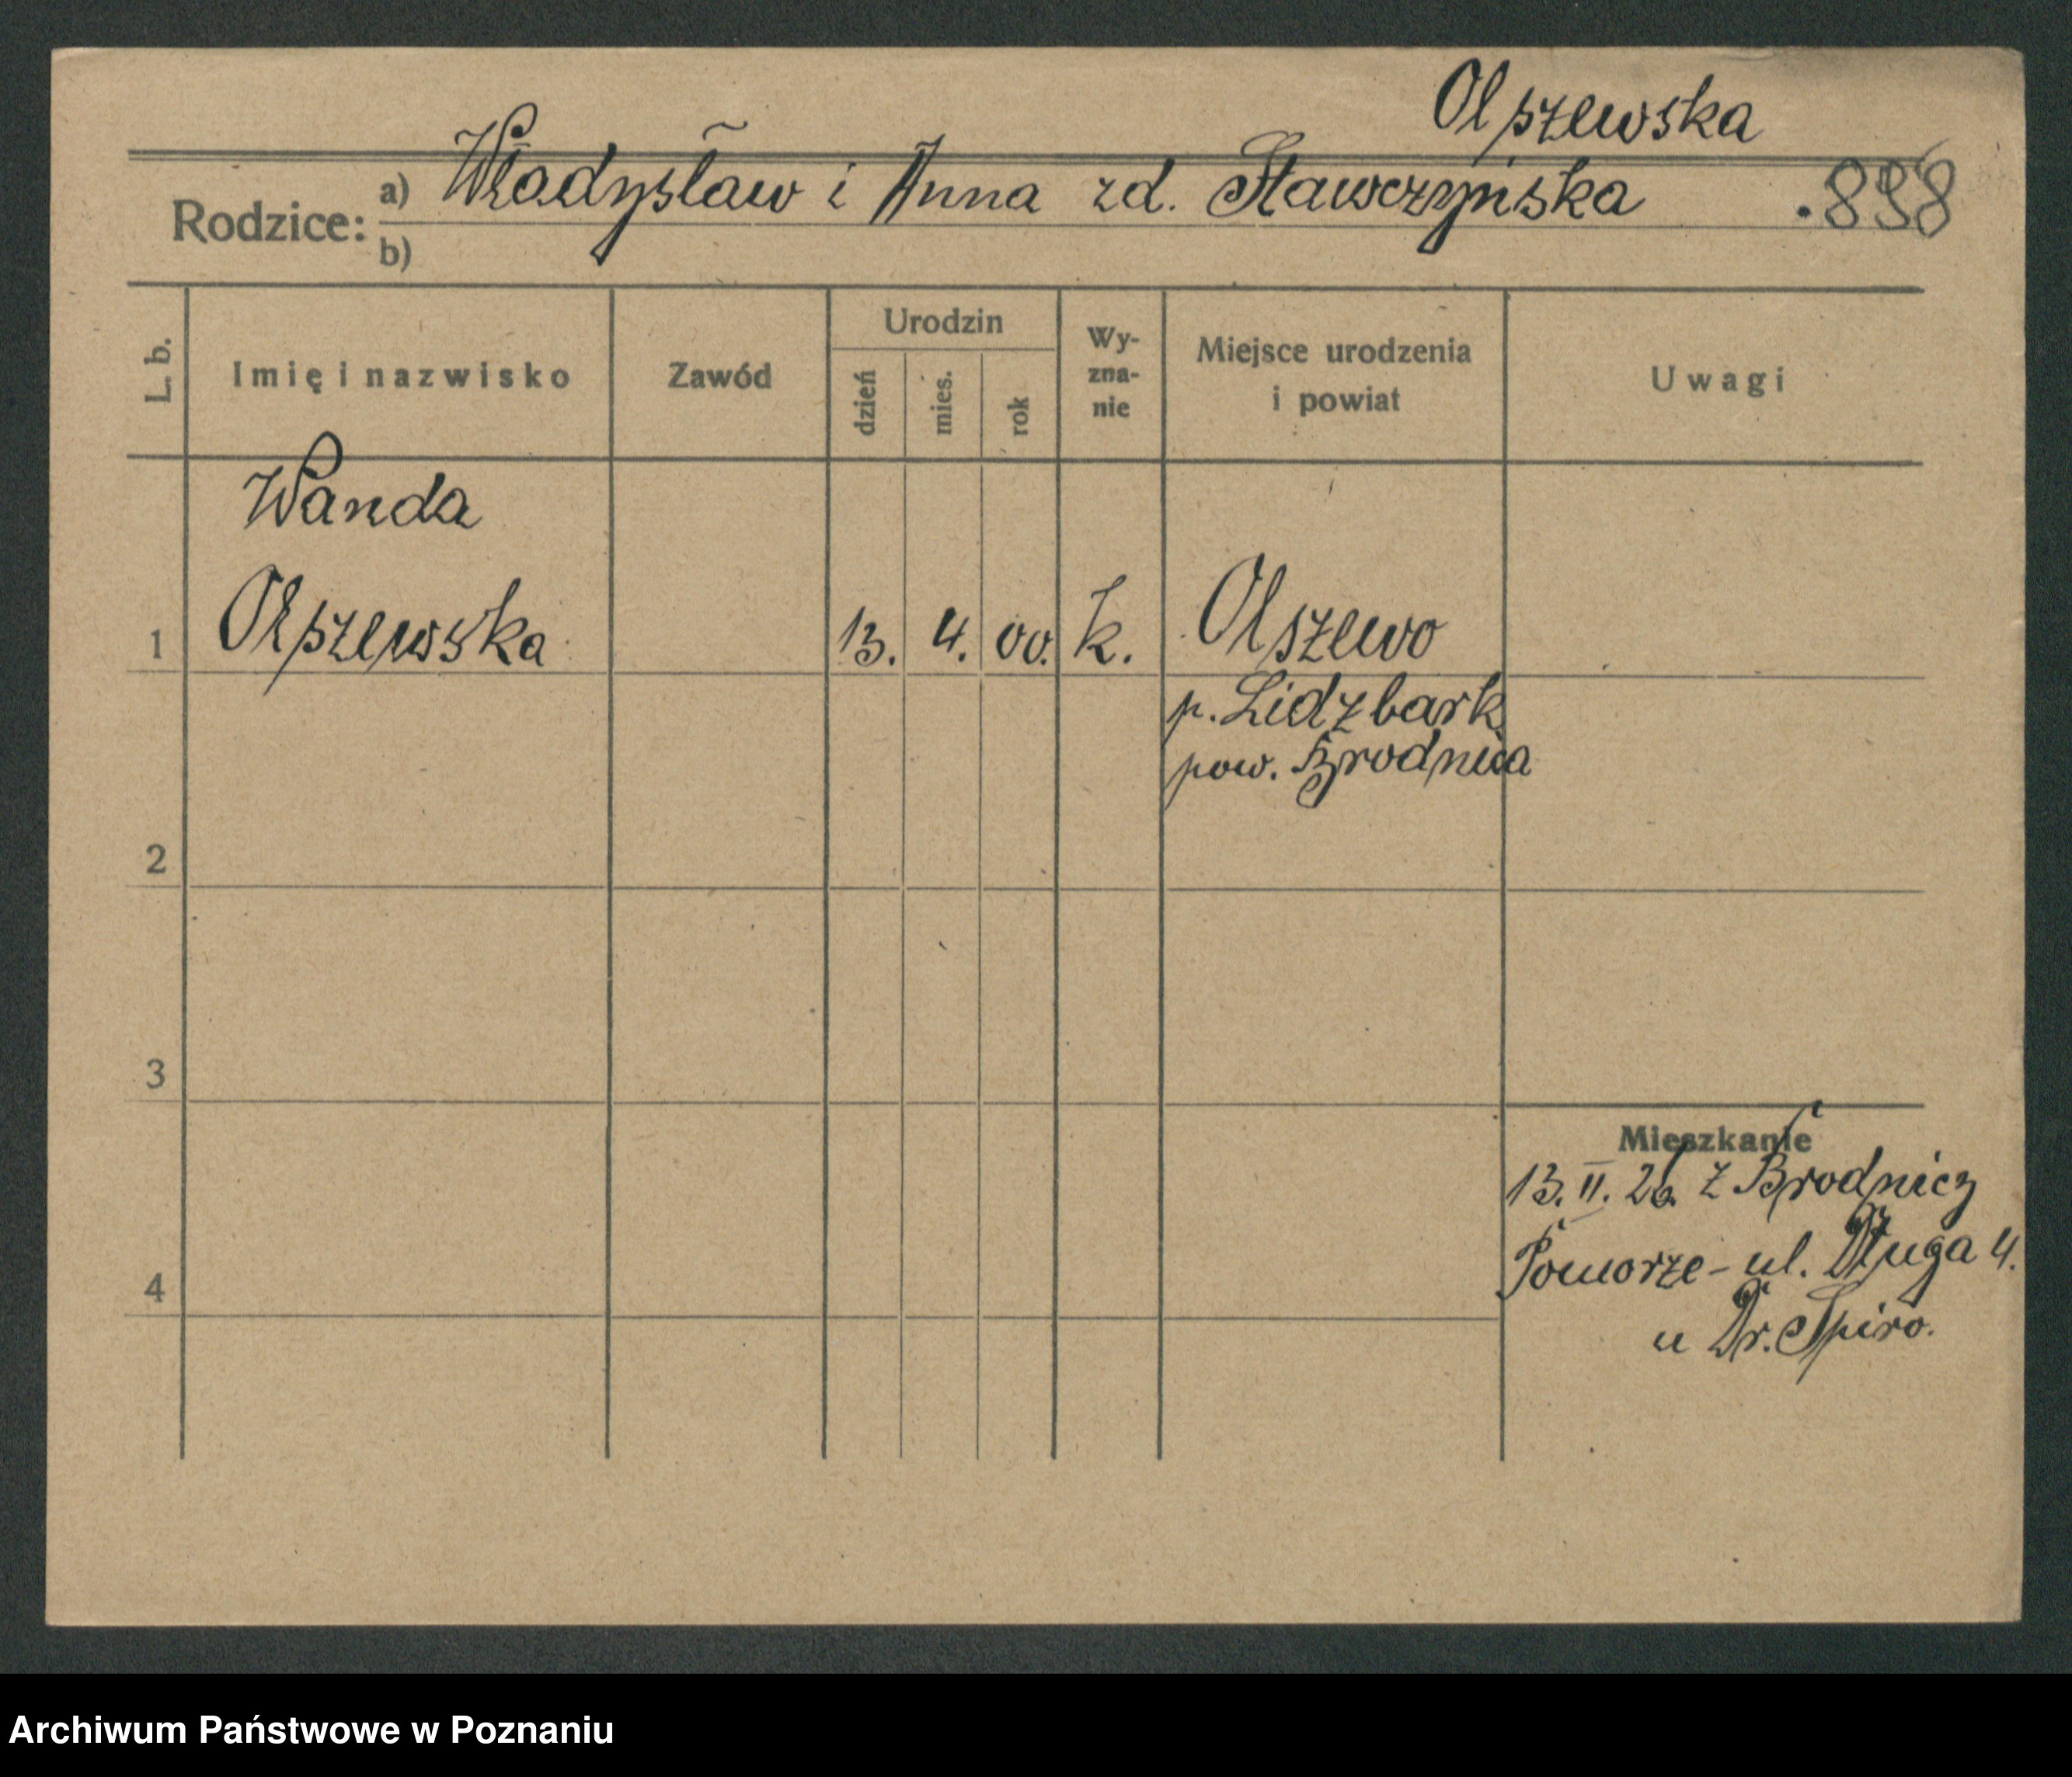 Olszewska
Rodzice: a) Władysław i Anna zd. Sławczyńska .898
b)
L. b.
Imię i nazwisko
Zawód
Urodzin
dzień
mies.
rok
Wy-
zna-
nie
Miejsce urodzenia
i powiat
Uwagi
Wanda
1 Olszewska 13. 4. 00. k. Olszewo
p. Lidzbark
pow. Brodnica
2
3
Mieszkanie
13. II. 26. z Brodnicy
Pomorze - ul. Długa 4.
4
u Dr. Spiro.
Archiwum Państwowe w Poznaniu